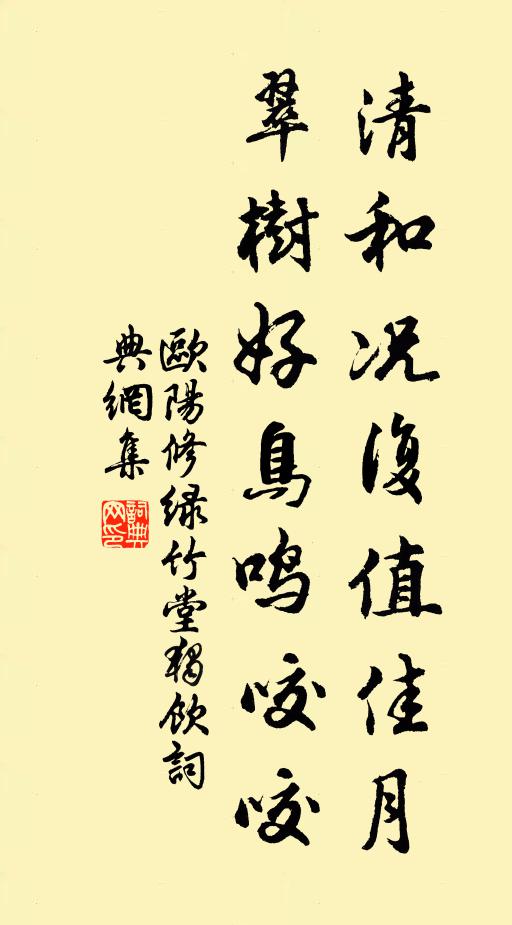 清和况復值佳月
翠樹好鳥鳴咬咬
歐陽修绿竹堂獨飲詞
典網集
詞典
网印